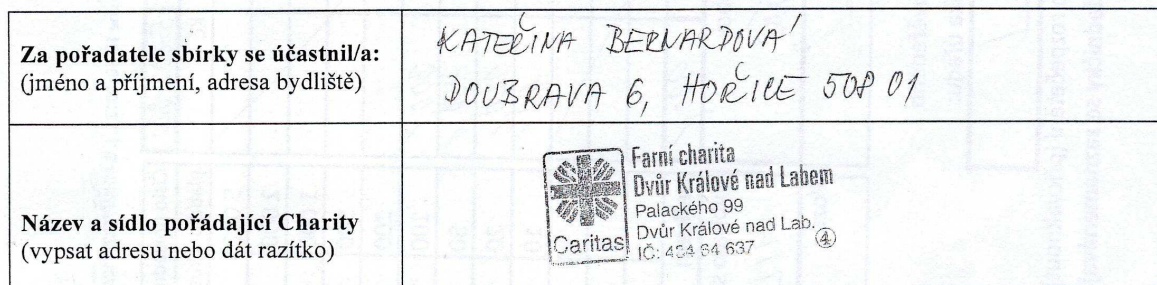 Za pořadatele sbírky se účastnil/a:
(jméno a příjmení, adresa bydliště)
KATEŘINA BERNARDOVÁ
DOUBRAVA 6, HOŘICE 508 01
Název a sídlo pořádající Charity
(vypsat adresu nebo dát razítko)
Caritas
Farní charita
Dvůr Králové nad Labem
Palackého 99
Dvůr Králové nad Lab.
④
IČ: 434 64 637